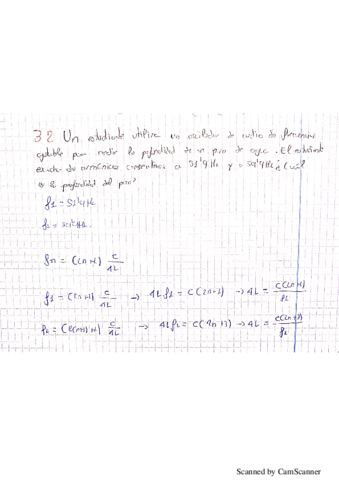 32 Un estudiante utiliza un oscilador de audio de frecuencia
para medir la profundidad de un pozo de agua. El estudiante
escucha dos armónicos consecutivos a 51'9 Hz y
es la profundidad del pozo?
f1 = 51'9 Hz
f2 =
fn = (2n+1) c/4L
f1 = (2n+1) c/4L → 4L f1 = c(2n+1) → 4L = c(2n+1)/f1
f2 = (2(n+1)+1) c/4L → 4L f2 = c(2n+3) → 4L = c(2n+3)/f2
Scanned by CamScanner